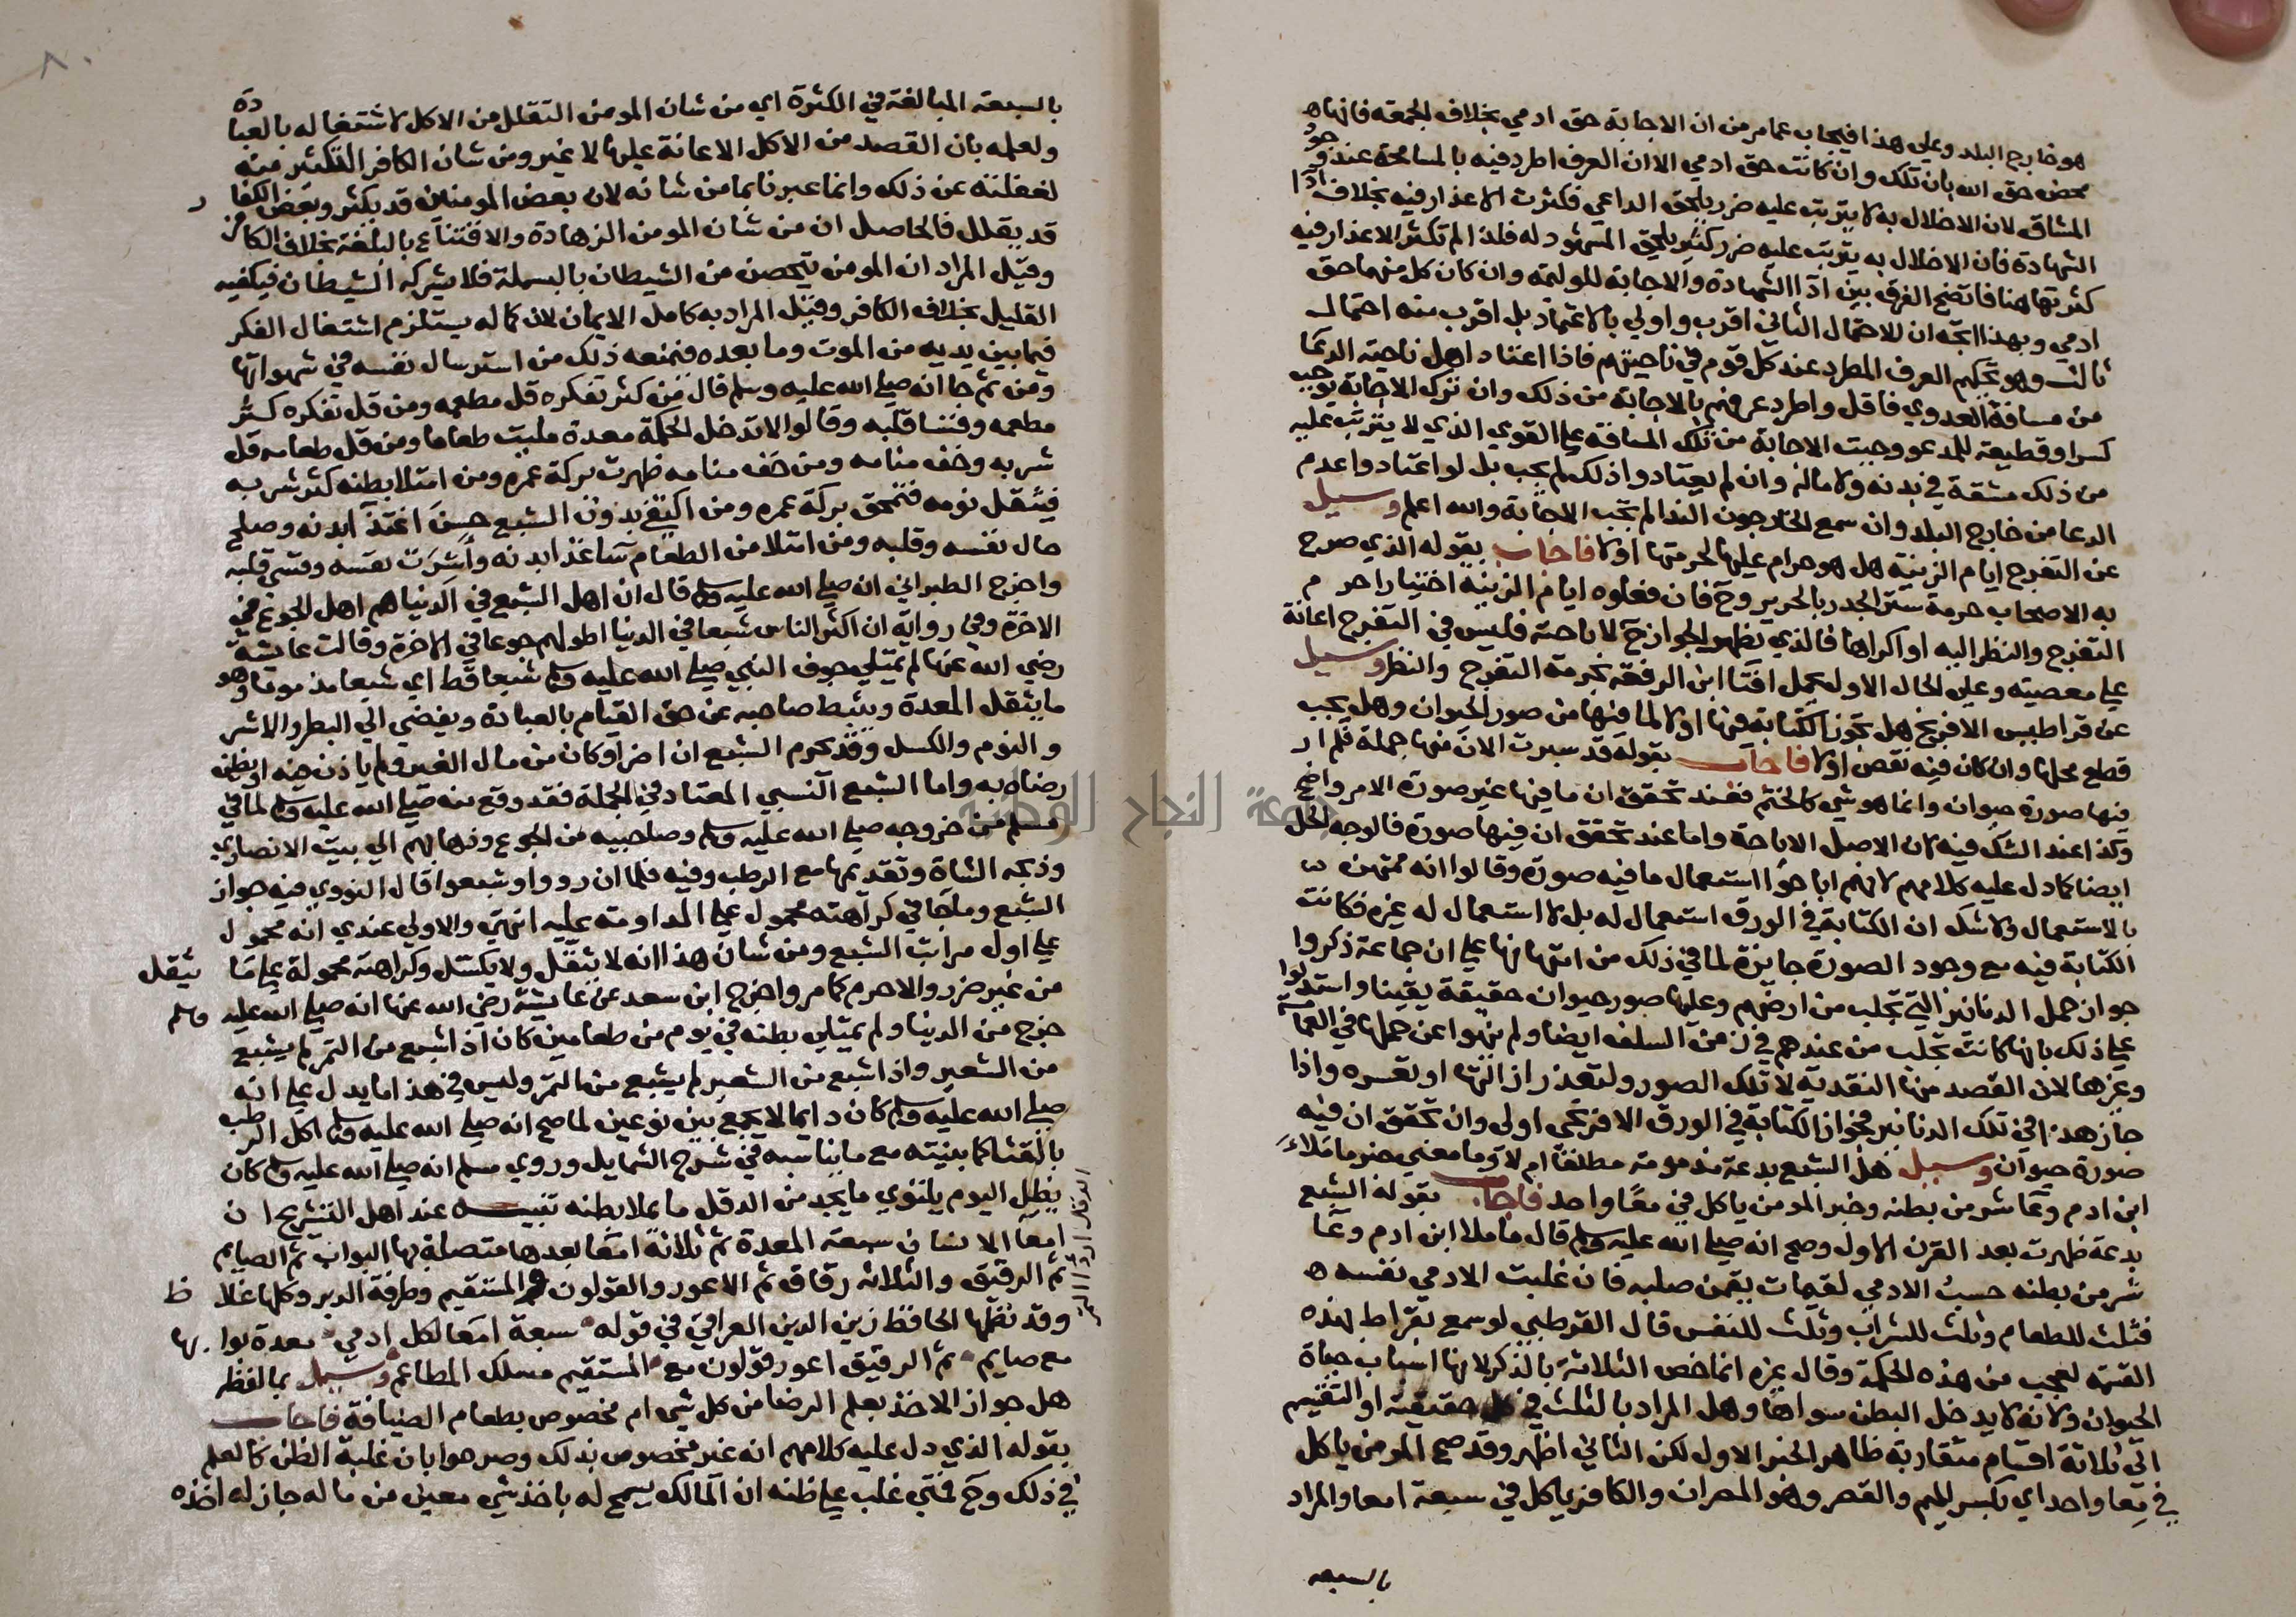 هو خارج البلد وعلي هذا فيجاب عما مر من ان الاجابة حق ادمي بخلاف الجمعة فانها
محض حق الله بان تلك وان كانت حق ادمي الا ان العرف اطرد فيه بالمسامحة عند وجود
المشاق لان الاخلال به لا يترتب عليه ضرر يلحق الداعي فكثرت الاعذار فيه بخلاف ادا
الشهادة فان الاخلال به يترتب عليه ضرر كثير يلحق المشهود له فلذا لم تكثر الاعذار فيه
كثرتها هنا فاتضح الفرق بين ادا الشهادة والاجابة للوليمة وان كان كل منهما حق
ادمي وبهذا اتجه ان للاحتمال الثاني اقرب واولي بالاعتماد بل اقرب منه احتمال
ثالث وهو تحكيم العرف المطرد عند كل قوم في ناحيتهم فاذا اعتاد اهل ناحية الدعا
من مسافة العدوي فاقل واطرد عرفهم بالاجابة من ذلك وان ترك الاجابة يوجب
كسرا وقطيعة للمدعو وجبت الاجابة من تلك المسافة علي القوي الذي لا يترتب عليه
من ذلك مشقة في بدنه ولا ماله وان لم يعتادوا ذلك لم يجب بل لو اعتادوا عدم
الدعا من خارج البلد وان سمع الخارجون الندا لم تجب الاجابة والله اعلم وسيل
عن التفرج ايام الزينة هل هو حرام عليها لحرمتها اولا فاجاب بقوله الذي صرح
به الاصحاب حرمة ستر الجدر بالحرير وح فان فعلوه ايام الزينة اختيارا حرم
التفرج والنظر اليه او اكراها فالذي يظهر الجواز ح لاباحته فليس في التفرج اعانة
علي معصيته وعلي الحال الاول يحمل افتا ابن الرفعة بحرمة التفرج والنظر وسيل
عن قراطيس الافرنج هل تجوز الكتابة فيها اولا لما فيها من صور الحيوان وهل يجب
قطع محلها وان كان فيه نقص اولا فاجاب بقوله قد سبرت الان منها جملة فلم ار
فيها صورة حيوان وانما هو شي كالختم فعند تحقق ان ما فيها غير صورة الامر واضح
وكذا عند الشك فيه لان الاصل الاباحة واما عند تحقق ان فيها صورة فالوجه الحل
ايضا كما دل عليه كلامهم لانهم اباحوا استعمال ما فيه صورة وقالوا انه ممتهن
بالاستعمال ولا شك ان الكتابة في الورق استعمال له بل لا استعمال له غيره فكانت
الكتابة فيه مع وجود الصورة جايزة لما في ذلك من امتهانها علي ان جماعة ذكروا
جواز حمل الدنانير التي تجلب من ارضهم وعليها صور حيوان حقيقة يقينا واستدلوا
علي ذلك بانها كانت تجلب من عندهم في زمن السلف ايضا ولم ينهوا عن حملها في العمامة
وغيرها لان القصد منها النقدية لا تلك الصور ولتعذر ازالتها او تعسره واذا
جاز هذا في تلك الدنانير فجواز الكتابة في الورق الافرنجي اولي وان تحقق ان فيه
صورة حيوان وسيل هل الشبع بدعة مذمومة مطلقا ام لا وما معني خبر ما ملاء
ابن ادم وعا شر من بطنه وخبر المومن ياكل في معا واحد فاجاب بقوله الشبع
بدعة ظهرت بعد القرن الاول وصح انه صلي الله عليه وسلم قال ما ملا ابن ادم وعا
شر من بطنه حسب الادمي لقيمات يقمن صلبه فان غلبت الادمي نفسه
فثلث للطعام وثلث للشراب وثلث للنفس قال القرطبي لو سمع بقراط بهذه
القسمة لعجب من هذه الحكمة وقال غيره انما خص الثلاثة بالذكر لانها اسباب حياة
الحيوان ولانه لا يدخل البطن سواها وهل المراد بالثلث في كل حقيقته او التقسيم
الي ثلاثة اقسام متقاربة ظاهر الخبر الاول لكن الثاني اظهر وقد صح المومن ياكل
في معا واحد اي بكسر الميم والقصر وهو المصران والكافر ياكل في سبعة امعا والمراد
بالسبعه
بالسبعة المبالغة في الكثرة اي من شان المومن التقلل من الاكل لاشتغاله بالعبادة
ولعلمه بان القصد من الاكل الاعانة عليها لا غير ومن شان الكافر التكثر منه
لغفلته عن ذلك وانما عبرنا بما من شانه لان بعض المومنين قد يكثر وبعض الكفار
قد يقلل فالحاصل ان من شان المومن الزهادة والاقتناع بالبلغة بخلاف الكافر
وقيل المراد ان المومن يتحصن من الشيطان بالبسملة فلا يشركه الشيطان فيكفيه
القليل بخلاف الكافر وقيل المراد به كامل الايمان لان كماله يستلزم اشتغال الفكر
فيما بين يديه من الموت وما بعده فيمنعه ذلك من استرسال نفسه في شهواتها
ومن ثم جا انه صلي الله عليه وسلم قال من كثر تفكره قل مطعمه ومن قل تفكره كثر
مطعمه وقسا قلبه وقالوا لا تدخل الحكمة معدة ملئت طعاما ومن قل طعامه قل
شربه وخف منامه ومن خف منامه ظهرت بركة عمره ومن امتلا بطنه كثر شربه
فيثقل نومه فتمحق بركة عمره ومن اكتفي بدون الشبع حسن اغتذا بدنه وصلح
حال نفسه وقلبه ومن امتلا من الطعام سا غذا بدنه واشرت نفسه وقسي قلبه
واخرج الطبراني انه صلي الله عليه وسلم قال ان اهل الشبع في الدنيا هم اهل الجوع في
الاخرة وفي رواية ان اكثر الناس شبعا في الدنيا اطولهم جوعا في الاخرة وقالت عايشة
رضي الله عنها لم يمتلي جوف النبي صلي الله عليه وسلم شبعا قط اي شبعا مذموما وهو
ما يثقل المعدة ويثبط صاحبه عن حق القيام بالعبادة ويفضي الي البطر والاشر
والنوم والكسل وقد يحرم الشبع ان اضر او كان من مال الغير ولم ياذن فيه او يظن
رضاه به واما الشبع النسبي المعتاد في الجملة فقد وقع منه صلي الله عليه وسلم لما في
مسلم من خروجه صلي الله عليه وسلم وصاحبيه من الجوع وذهابهم الي بيت الانصاري
وذبحه الشاة وتقديمها مع الرطب وفيه فلما ان رووا وشبعوا قال النووي فيه جواز
الشبع وما جا في كراهته محمول علي المداومة عليه انتهي والاولي عندي انه محمول
علي اول مراتب الشبع ومن شان هذا انه لا يثقل ولا يكسل وكراهته محمولة علي ما يثقل
من غير ضرر والا حرم كما مر واخرج ابن سعد عن عايشة رضي الله عنها انه صلي الله عليه وسلم
خرج من الدنيا ولم يمتلي بطنه في يوم من طعامين كان اذا شبع من التمر لم يشبع
من الشعير واذا شبع من الشعير لم يشبع من التمر وليس في هذا ما يدل علي انه
صلي الله عليه وسلم كان دايما لا يجمع بين نوعين لما صح انه صلي الله عليه وسلم اكل الرطب
بالقثا كما بينته مع ما يناسبه في شرح الشمايل وروي مسلم انه صلي الله عليه وسلم كان
يظل اليوم يلتوي ما يجد من الدقل ما يملا بطنه تنبيه عند اهل التشريح ان
امعا الانسان سبعة المعدة ثم ثلاثة امعا بعدها متصلة بها البواب ثم الصايم
ثم الرقيق والثلاثة رقاق ثم الاعور والقولون والمستقيم وطرفه الدبر وكلها غلاظ
وقد نظمها الحافظ زين الدين العراقي في قوله سبعة امعا لكل ادمي معدة بوابها
مع صايم ثم الرقيق اعور قولون مع المستقيم مسلك المطاعم وسيل بما لفظه
هل جواز الاخذ بعلم الرضا من كل شي ام مخصوص بطعام الضيافة فاجاب
بقوله الذي دل عليه كلامهم انه غير مخصوص بذلك وصرحوا بان غلبة الظن كالعلم
في ذلك وح فمتي غلب علي ظنه ان المالك يسمح له باخذ شي معين من ماله جاز له اخذه